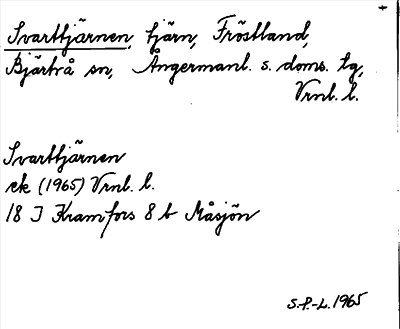 Svarttjärnen, tjärn, Fröstland,
Bjärtrå sn, Ångermanl. s. doms. lg,
Vrnl. l.
Svarttjärnen
ek (1965) Vrnl. l.
18 I Kramfors 8 b Måsjön
S.P.-L. 1965